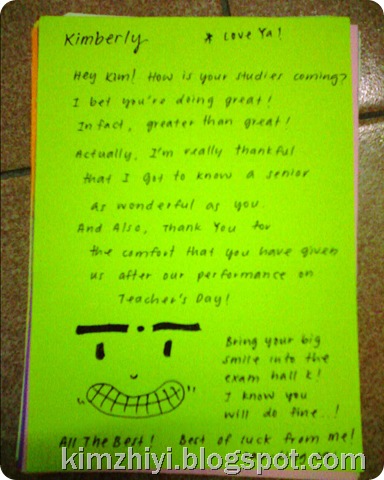 Kimberly * Love Ya!
Hey Kim! How is your studies coming?
I bet you're doing great!
In fact, greater than great!
Actually, I'm really thankful
that I got to know a senior
as wonderful as you.
And Also, Thank You for
the comfort that you have given
us after our performance on
Teacher's Day!
Bring your big
smile into the
exam hall k!
I know you
will do fine..!
All The Best! Best of luck from me!
kimzhiyi.blogspot.com